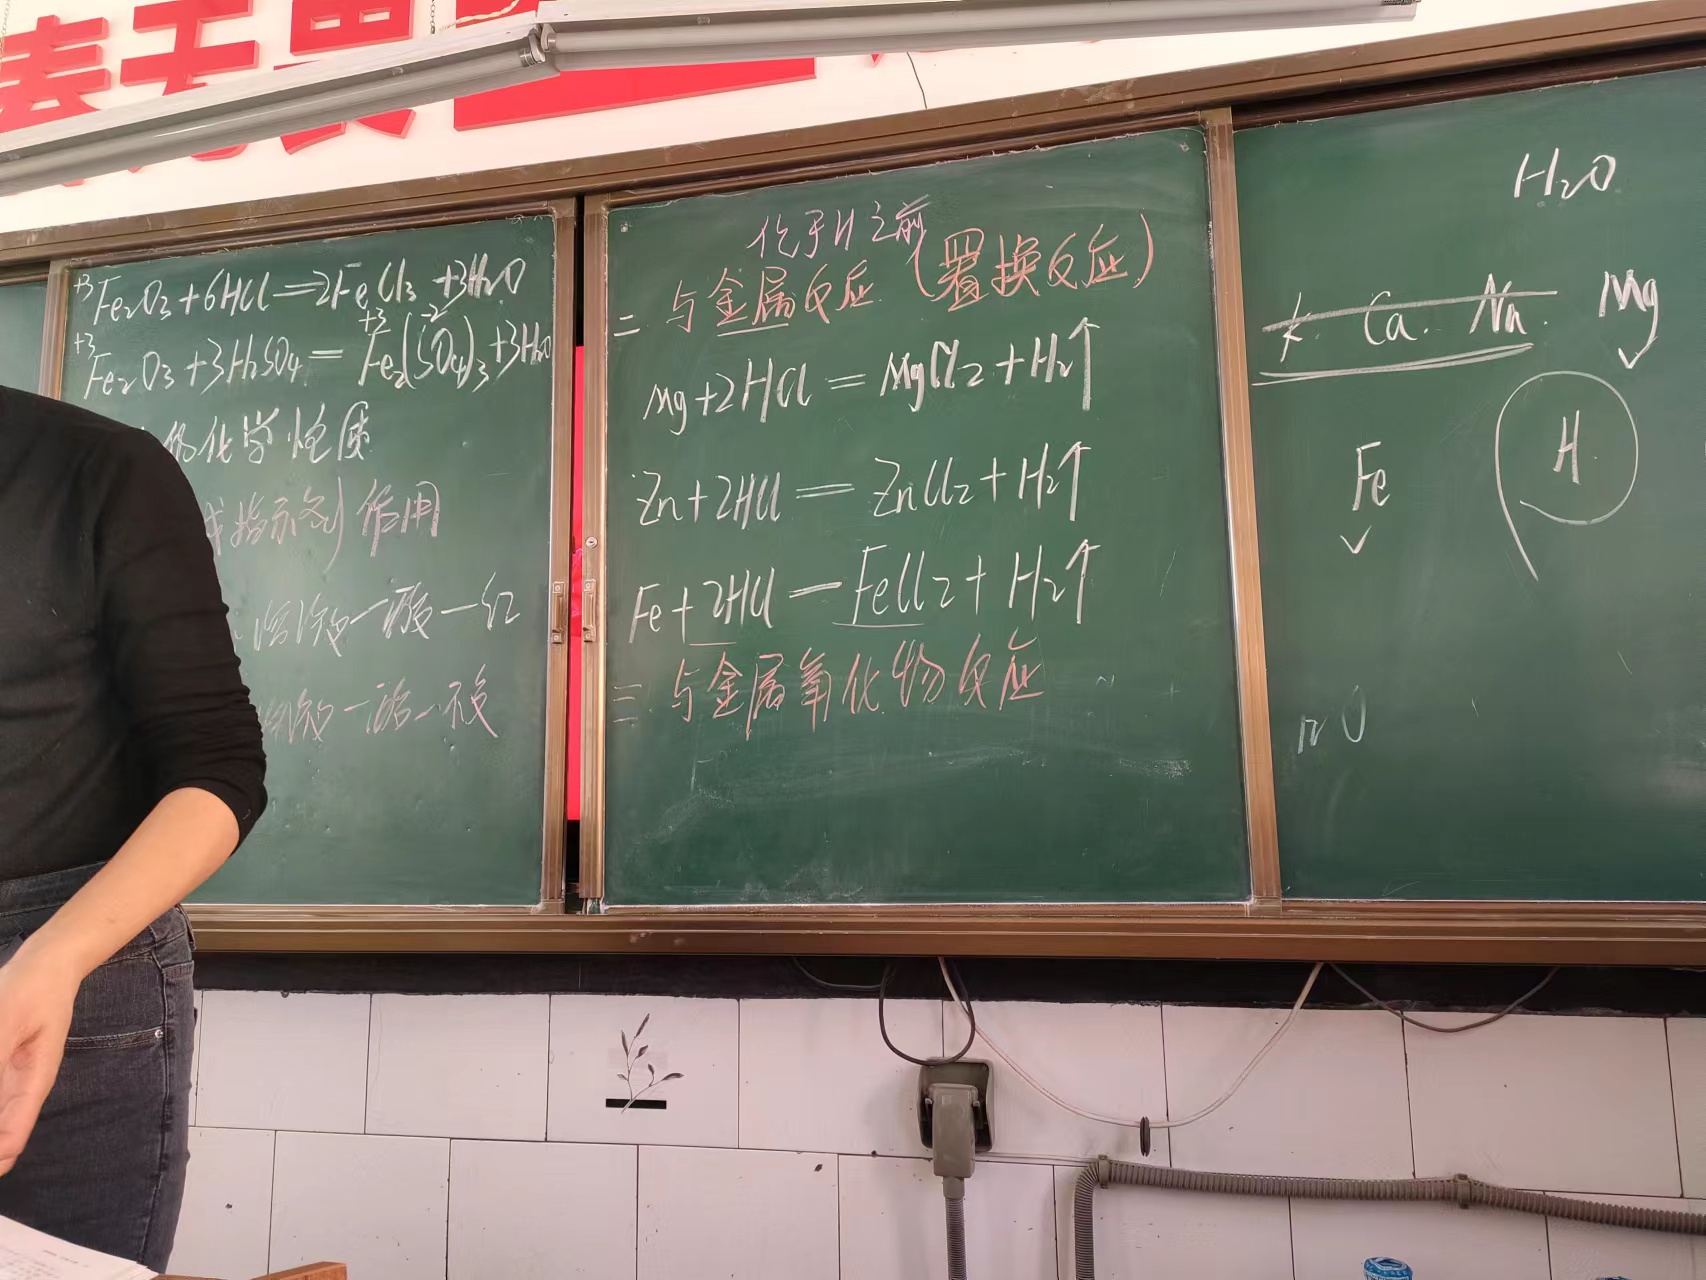 +3 Fe₂O₃+6HCl=2FeCl₃+3H₂O
+3 +3 -2
Fe₂O₃+3H₂SO₄=Fe₂(SO₄)₃+3H₂O
化学性质
指示剂作用
一酸一红
位于H之前
二.与金属反应(置换反应)
Mg+2HCl=MgCl₂+H₂↑
Zn+2HCl=ZnCl₂+H₂↑
Fe+2HCl=FeCl₂+H₂↑
三.与金属氧化物反应
H₂O
K. Ca. Na. Mg
Fe H